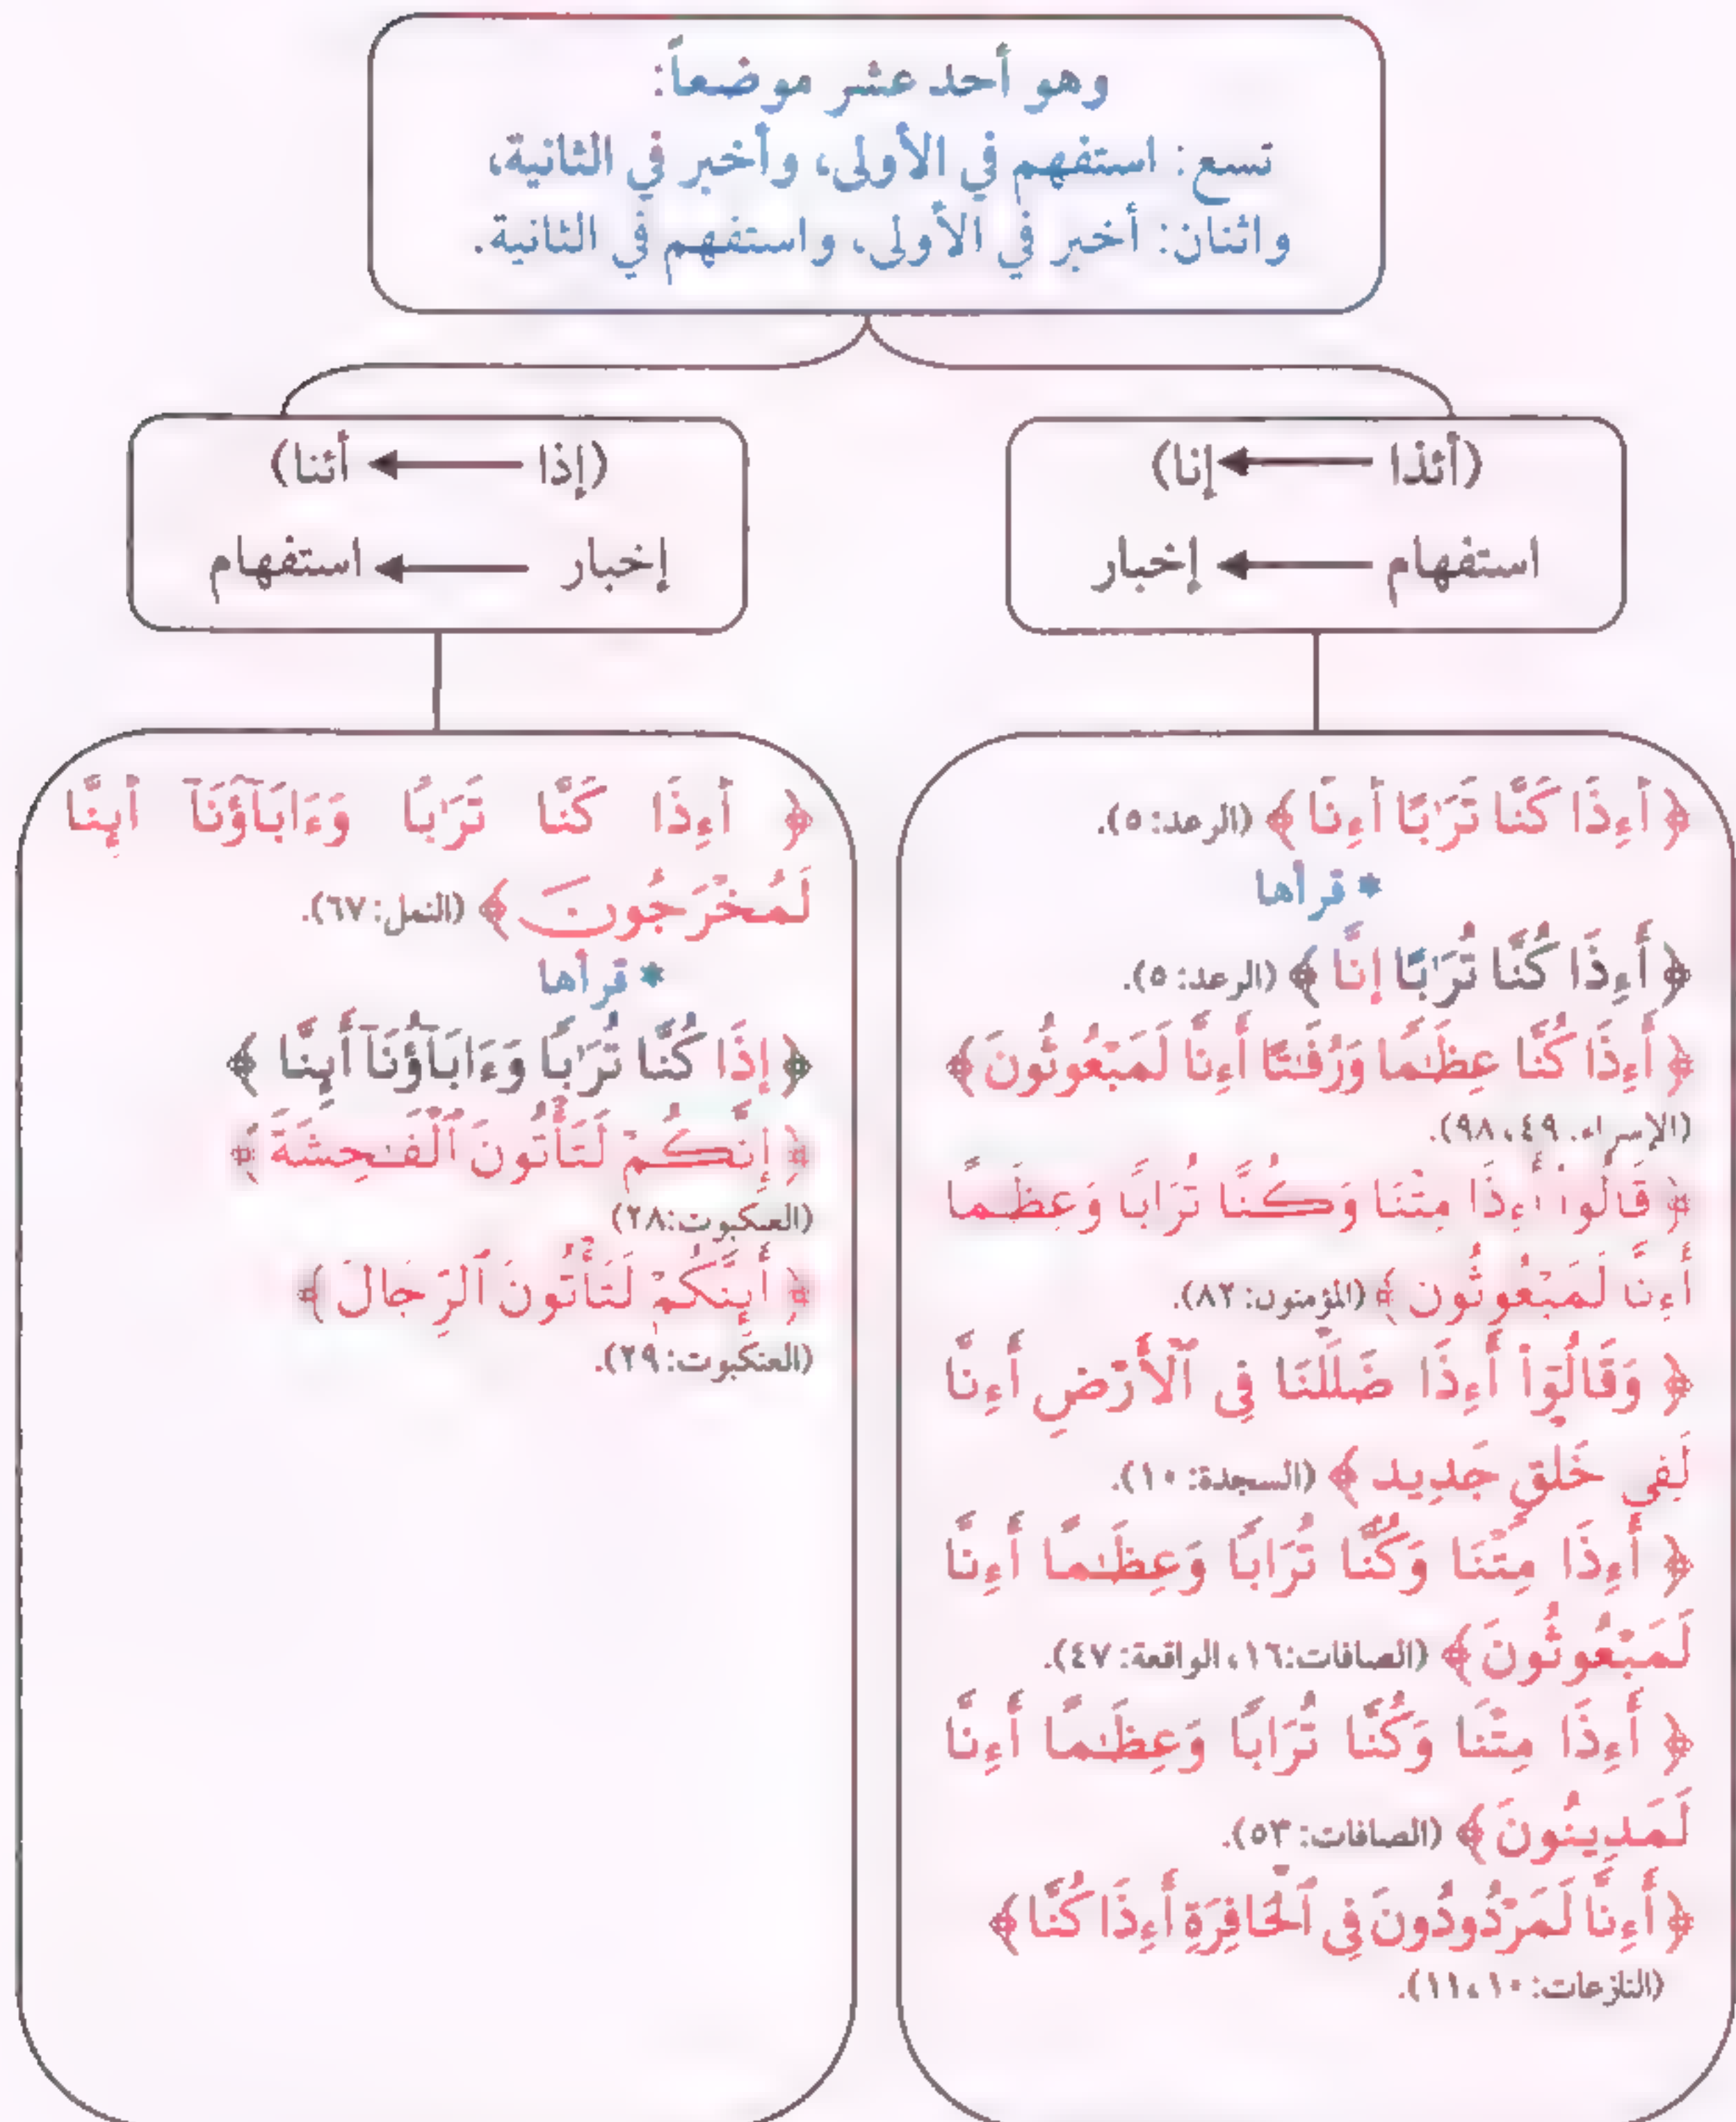 وهو أحد عشر موضعاً:
تسع: استفهم في الأولى، وأخبر في الثانية،
واثنان: أخبر في الأولى، واستفهم في الثانية.
(أئذا ← إنا)
استفهام ← إخبار
﴿ أَءِذَا كُنَّا تُرَٰبًا أَءِنَّا ﴾ (الرعد: ٥).
* قرأها
﴿ أَءِذَا كُنَّا تُرَٰبًا إِنَّا ﴾ (الرعد: ٥).
﴿ أَءِذَا كُنَّا عِظَٰمًا وَرُفَٰتًا أَءِنَّا لَمَبْعُوثُونَ ﴾
(الإسراء: ٤٩، ٩٨).
﴿ قَالُوا أَءِذَا مِتْنَا وَكُنَّا تُرَابًا وَعِظَٰمًا
أَءِنَّا لَمَبْعُوثُون ﴾ (المؤمنون: ٨٢).
﴿ وَقَالُوٓا۟ أَءِذَا ضَلَلْنَا فِى ٱلْأَرْضِ أَءِنَّا
لَفِى خَلْقٍ جَدِيد ﴾ (السجدة: ١٠).
﴿ أَءِذَا مِتْنَا وَكُنَّا تُرَابًا وَعِظَٰمًا أَءِنَّا
لَمَبْعُوثُونَ ﴾ (الصافات: ١٦، الواقعة: ٤٧).
﴿ أَءِذَا مِتْنَا وَكُنَّا تُرَابًا وَعِظَٰمًا أَءِنَّا
لَمَدِينُونَ ﴾ (الصافات: ٥٣).
﴿ أَءِنَّا لَمَرْدُودُونَ فِى ٱلْحَافِرَةِ أَءِذَا كُنَّا ﴾
(النازعات: ١٠، ١١).
(إذا ← أئنا)
إخبار ← استفهام
﴿ أَءِذَا كُنَّا تُرَٰبًا وَءَابَآؤُنَآ أَئِنَّا
لَمُخْرَجُونَ ﴾ (النمل: ٦٧).
* قرأها
﴿ إِذَا كُنَّا تُرَٰبًا وَءَابَآؤُنَآ أَئِنَّا ﴾
﴿ إِنَّكُمْ لَتَأْتُونَ ٱلْفَٰحِشَةَ ﴾
(العنكبوت: ٢٨)
﴿ أَئِنَّكُمْ لَتَأْتُونَ ٱلرِّجَالَ ﴾
(العنكبوت: ٢٩).